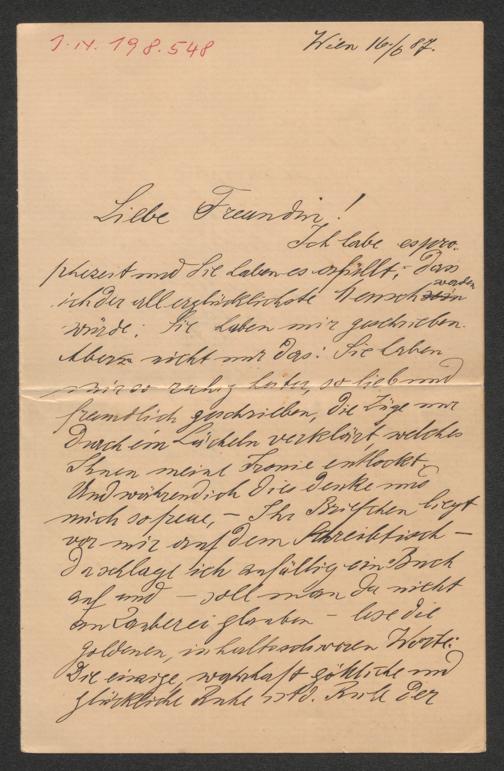 J.N. 198.548
Wien 16/6 87.
Liebe Freundin!
Ich habe espro-
phezeit und Sie haben es erfüllt; dass
ich der allerglücklichste Mensch worden
würde: Sie haben mir geschrieben.
Aber nicht nur das: Sie haben
mir so ruhig heiter, so lieb und
freundlich geschrieben, die Züge nur
durch ein Lächeln verklärt welches
Ihnen meine Ironie entlockt.
Und während ich dies denke und
mich so freue, – Ihr Briefchen liegt
vor mir auf dem Schreibtisch –
da schlage ich zufällig ein Buch
auf und – soll man da nicht
an Zauberei glauben – lese die
goldenen, inhaltsschweren Worte:
Die einzige, wahrhaft göttliche und
glückliche Ruhe ist d. Ruhe der